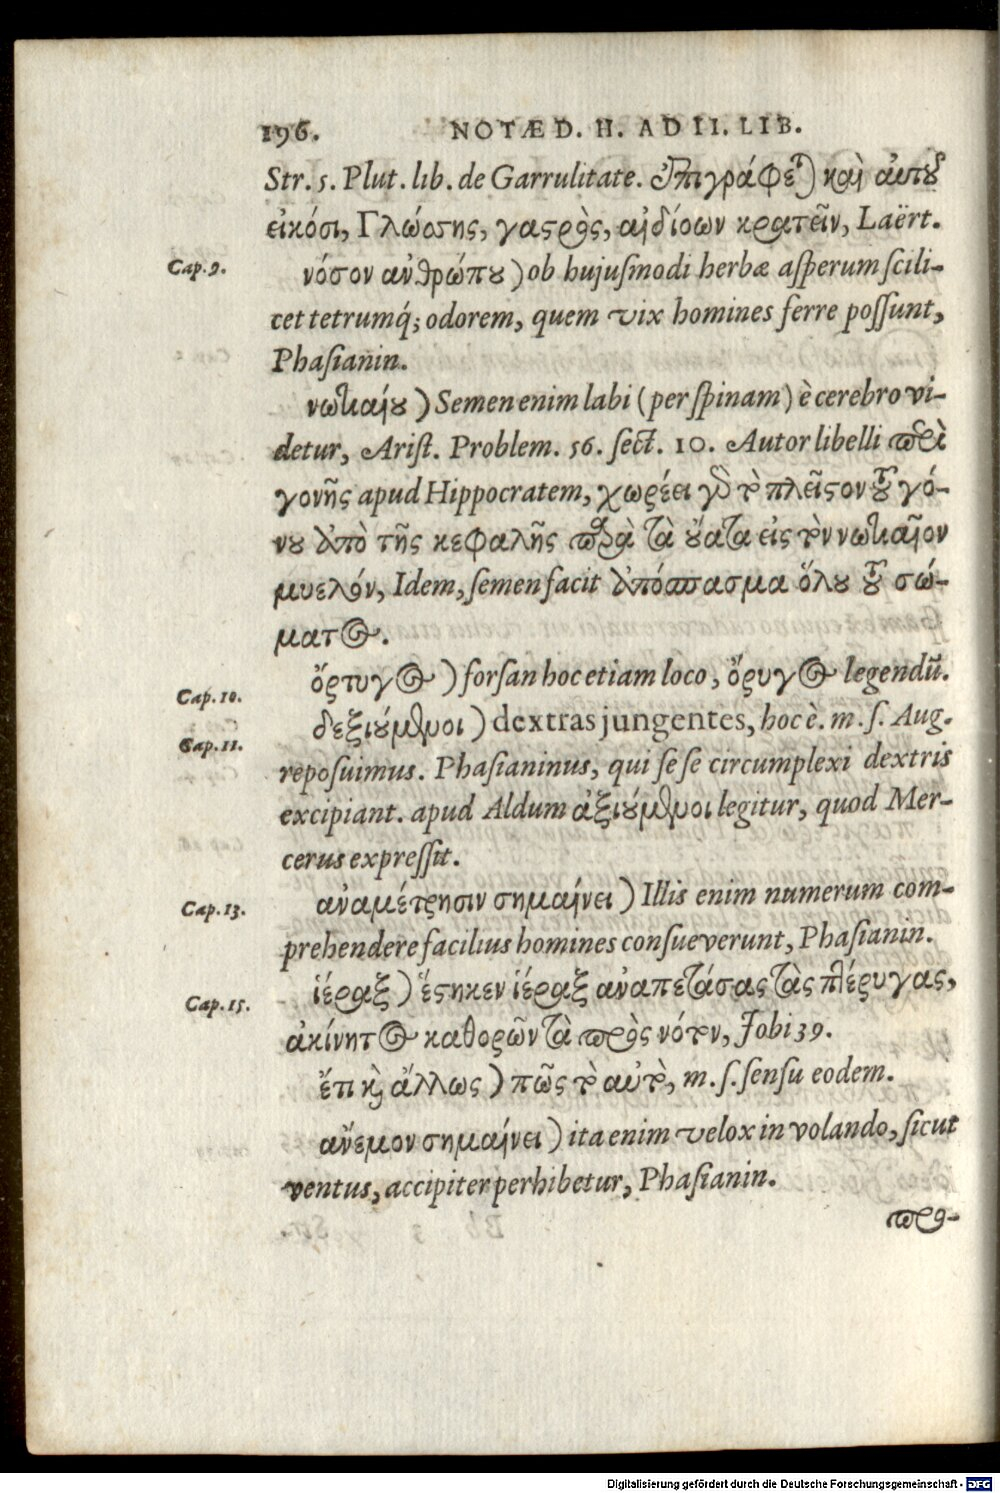 196. NOTÆ D. H. AD II. LIB.
Str. 5. Plut. lib. de Garrulitate. ἐπιγράφεται) καὶ αὐτοῦ
εἰκόσι, Γλώσσης, γαστρὸς, αἰδίοων κρατεῖν, Laërt.
Cap. 9. νόσον ἀνθρώπου) ob hujusmodi herbæ asperum scili-
cet tetrumq́; odorem, quem vix homines ferre possunt,
Phasianin.
νωτιαίου) Semen enim labi (per spinam) è cerebro vi-
detur, Arist. Problem. 56. sect. 10. Autor libelli περὶ
γονῆς apud Hippocratem, χωρέει γὰρ τὸ πλεῖστον τοῦ γό-
νου ἀπὸ τῆς κεφαλῆς παρὰ τὰ οὔατα εἰς τὸν νωτιαῖον
μυελόν, Idem, semen facit ἀπόσπασμα ὅλου τοῦ σώ-
ματος.
Cap. 10. ὄρτυγος) forsan hoc etiam loco, ὄρυγος legendũ.
Cap. 11. δεξιούμενοι) dextras jungentes, hoc è. m. s. Aug.
reposuimus. Phasianinus, qui se se circumplexi dextris
excipiant. apud Aldum ἀξιούμενοι legitur, quod Mer-
cerus expressit.
Cap. 13. ἀναμέτρησιν σημαίνει) Illis enim numerum com-
prehendere facilius homines consueverunt, Phasianin.
Cap. 15. ἱέραξ) ἕστηκεν ἱέραξ ἀναπετάσας τὰς πτέρυγας,
ἀκίνητος καθορῶν τὰ πρὸς νότον, Jobi 39.
ἔτι καὶ ἄλλως) πῶς τὸ αὐτὸ, m. s. sensu eodem.
ἄνεμον σημαίνει) ita enim velox in volando, sicut
ventus, accipiter perhibetur, Phasianin.
προ-
Digitalisierung gefördert durch die Deutsche Forschungsgemeinschaft - DFG